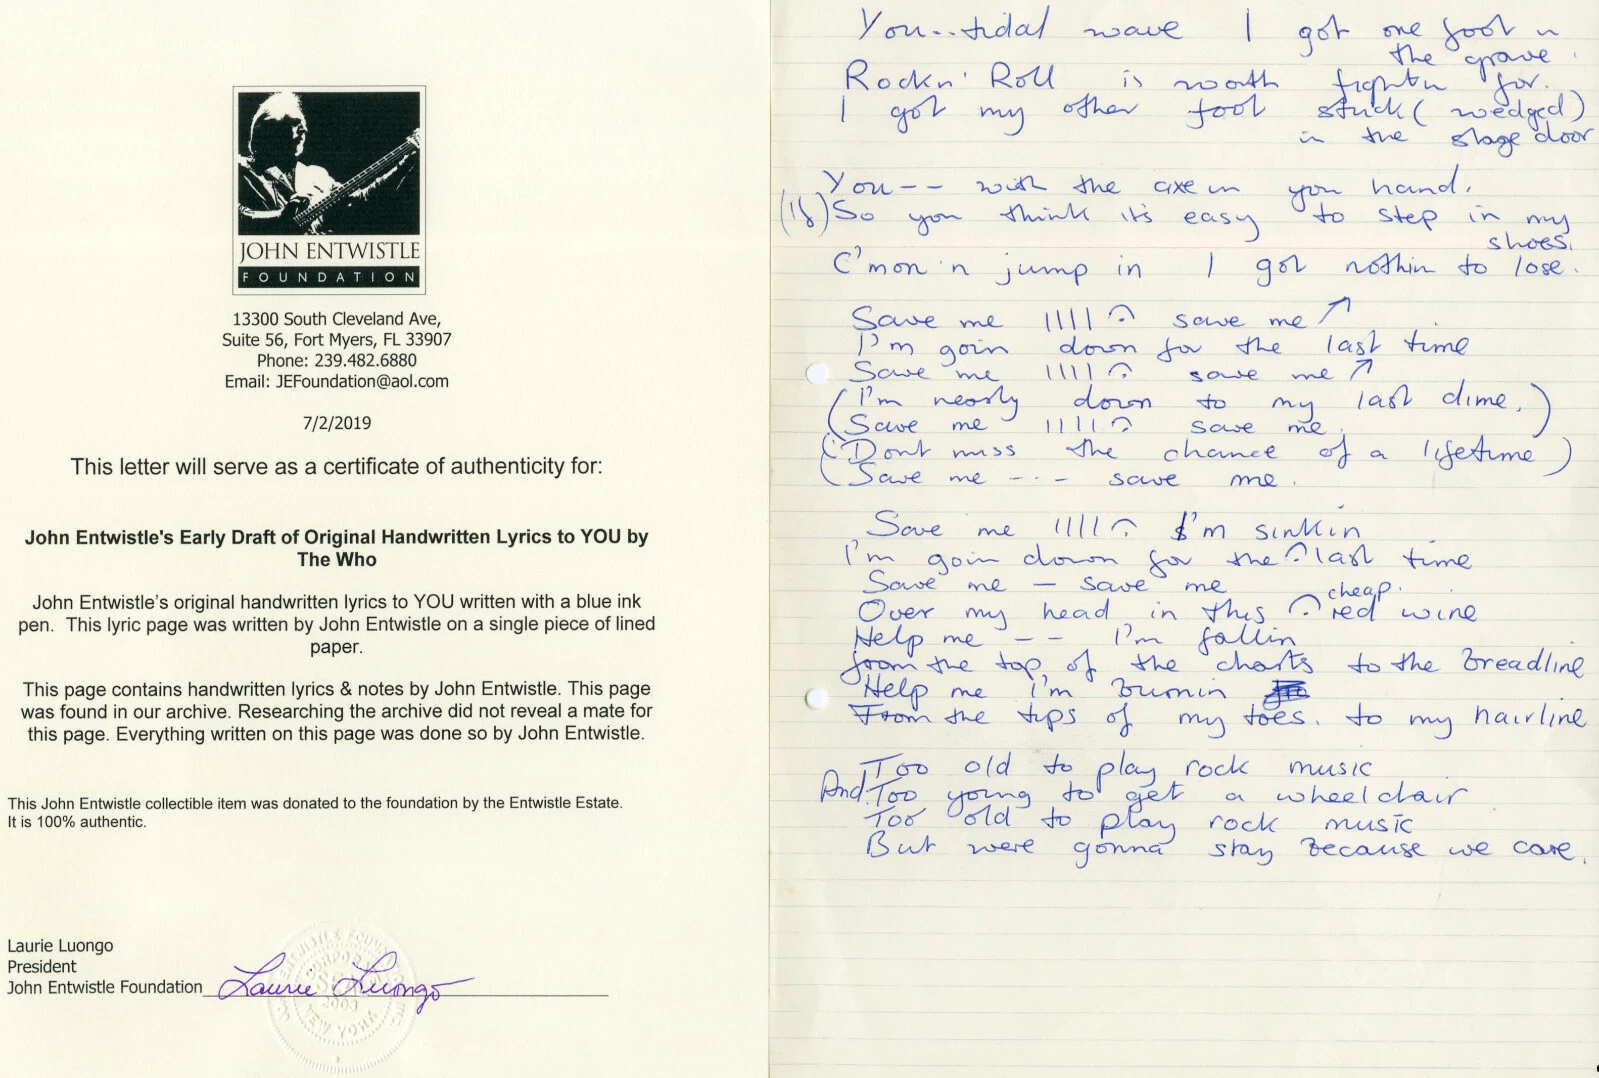 JOHN ENTWISTLE
FOUNDATION
13300 South Cleveland Ave,
Suite 56, Fort Myers, FL 33907
Phone: 239.482.6880
Email: JEFoundation@aol.com
7/2/2019
This letter will serve as a certificate of authenticity for:
John Entwistle's Early Draft of Original Handwritten Lyrics to YOU by
The Who
John Entwistle's original handwritten lyrics to YOU written with a blue ink
pen. This lyric page was written by John Entwistle on a single piece of lined
paper.
This page contains handwritten lyrics & notes by John Entwistle. This page
was found in our archive. Researching the archive did not reveal a mate for
this page. Everything written on this page was done so by John Entwistle.
This John Entwistle collectible item was donated to the foundation by the Entwistle Estate.
It is 100% authentic.
Laurie Luongo
President
John Entwistle Foundation
Laurie Luongo
2003
NEW YORK
You..tidal wave I got one foot n
the grave.
Rockn' Roll is worth fightn for.
I got my other foot stuck (wedged)
in the stage door
You -- with the axe in you hand.
(If) So you think it's easy to step in my
shoes.
C'mon 'n jump in I got nothin to lose.
Save me save me
I'm goin down for the last time
Save me save me
(I'm nearly down to my last dime.)
(Save me save me.)
(Dont miss the chance of a lifetime)
(Save me --- save me.
Save me I'm sinkin
I'm goin down for the last time
Save me - save me
cheap.
Over my head in this red wine
Help me -- I'm fallin
from the top of the charts to the breadline
Help me I'm burnin
From the tips of my toes. to my hairline
Too old to play rock music
And Too young to get a wheelchair
Too old to play rock music
But were gonna stay because we care.